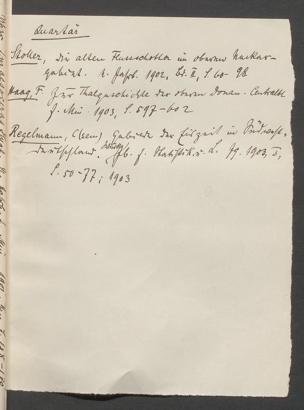 Quartär
Stoller, Die alten Flussschotter im oberen Neckar-
gebiet. N. Jahrb. 1902, Bd. II, S. 60-98
Haag, F. Zur Thalgeschichte der oberen Donau. Centralbl.
f. Min. 1903, S. 597-602
Regelmann, Gebilde der Eiszeit in Südwest-
deutschland. Jb. f. Statistik u. L. Jg. 1903, I,
S. 50-77; 1903